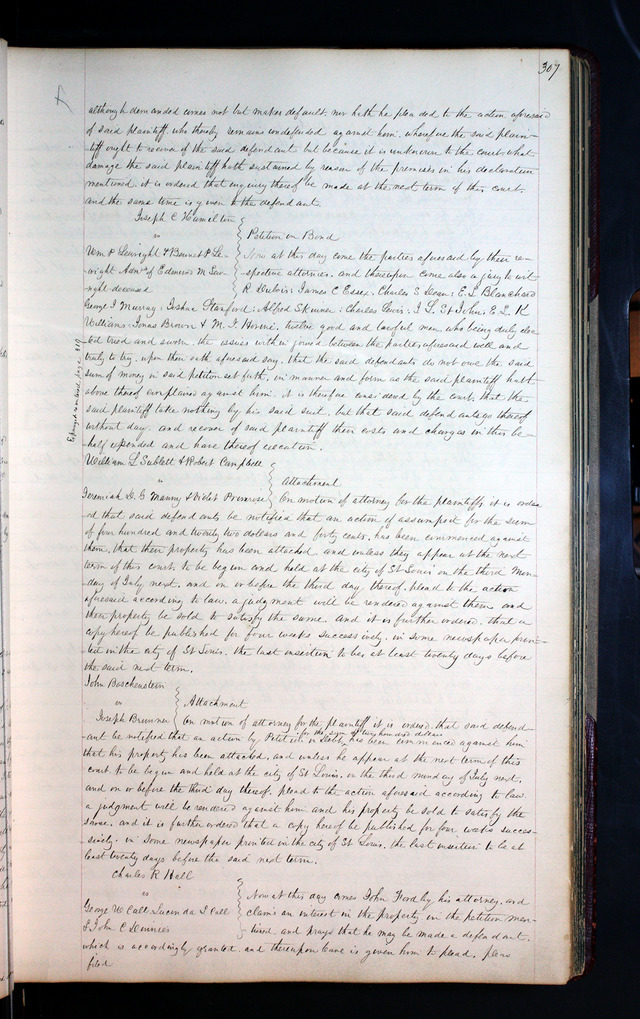 307
although demanded comes not but makes default, nor hath he pleaded to the action aforesaid
of said plaintiff who thereby remains undefended against him. wherefore the said plain-
tiff ought to recover of the said defendant but because it is unknown to the court what
damage the said plaintiff hath sustained by reason of the premises in his declaration
mentioned it is ordered that enquiry thereof be made at the next term of this court.
and the same time is given to the defendant.
Joseph C Hamilton
vs
Petition in Bond
Now at this day come the parties aforesaid by their re-
spective attornies, and thereupon come also a jury to wit
deceased
R Dubois, James C Essex, Charles S Sloan, E. L Blanchard
George I Murray, Joshua Stanford, Alfred Skinner, Charles Lewis, I L. St John, E. L. K
Williams, Jonas Brown & M. F. Horine, twelve good and lawful men who being duly elec-
ted tried and sworn the issues within joined between the parties aforesaid well and
truly to try. upon their oath aforesaid say, that the said defendants do not owe the said
sum of money in said petition set forth, in manner and form as the said plaintiff hath
above thereof complained against him. it is therefore considered by the court, that the
said plaintiff take nothing by his said suit, but that said defendants go thereof
without day. and recover of said plaintiff their costs and charges in this be-
half expended and have thereof execution.
page 319
William L Sublett & Robert Campbell
vs
Attachment
Jeremiah D. G Manny & Violet Primrose
On motion of attorney for the plaintiffs, it is order
ed that said defendants be notified that an action of assumpsit for the sum
of four hundred and twenty two dollars and forty cents, has been commenced against
them, that their property has been attached, and unless they appear at the next
term of this court, to be begun and held at the city of St Louis on the third Mon-
day of July next, and on or before the third day thereof, plead to the action
aforesaid according to law, a judgment will be rendered against them and
their property be sold to satisfy the same. and it is further ordered, that a
copy hereof be published for four weeks successively, in some newspaper prin-
ted in the city of St Louis, the last insertion to be, at least twenty days before
the said next term.
John Boschenstein
vs
Attachment
Joseph Brunner
On motion of attorney for the plaintiff it is ordered, that said defend-
for the sum of two hundred dollars
ant be notified that an action by Petition in Debt, has been commenced against him
that his property has been attached, and unless he appear at the next term of this
court to be begun and held at the city of St Louis, on the third monday of July next,
and on or before the third day thereof, plead to the action aforesaid according to law,
a judgment will be rendered against him and his property be sold to satisfy the
same, and it is further ordered that a copy hereof be published for four weeks succes-
sively, in some newspaper printed in the city of St Louis, the last insertion to be at
least twenty days before the said next term.
Charles R Hall
vs
Now at this day comes John Ford by his attorney, and
George W Call, Lucinda I Call
claims an interest in the property in the petition men-
& John C
tioned and prays that he may be made a defendant,
which is accordingly granted, and thereupon leave is given him to plead, pleas
filed